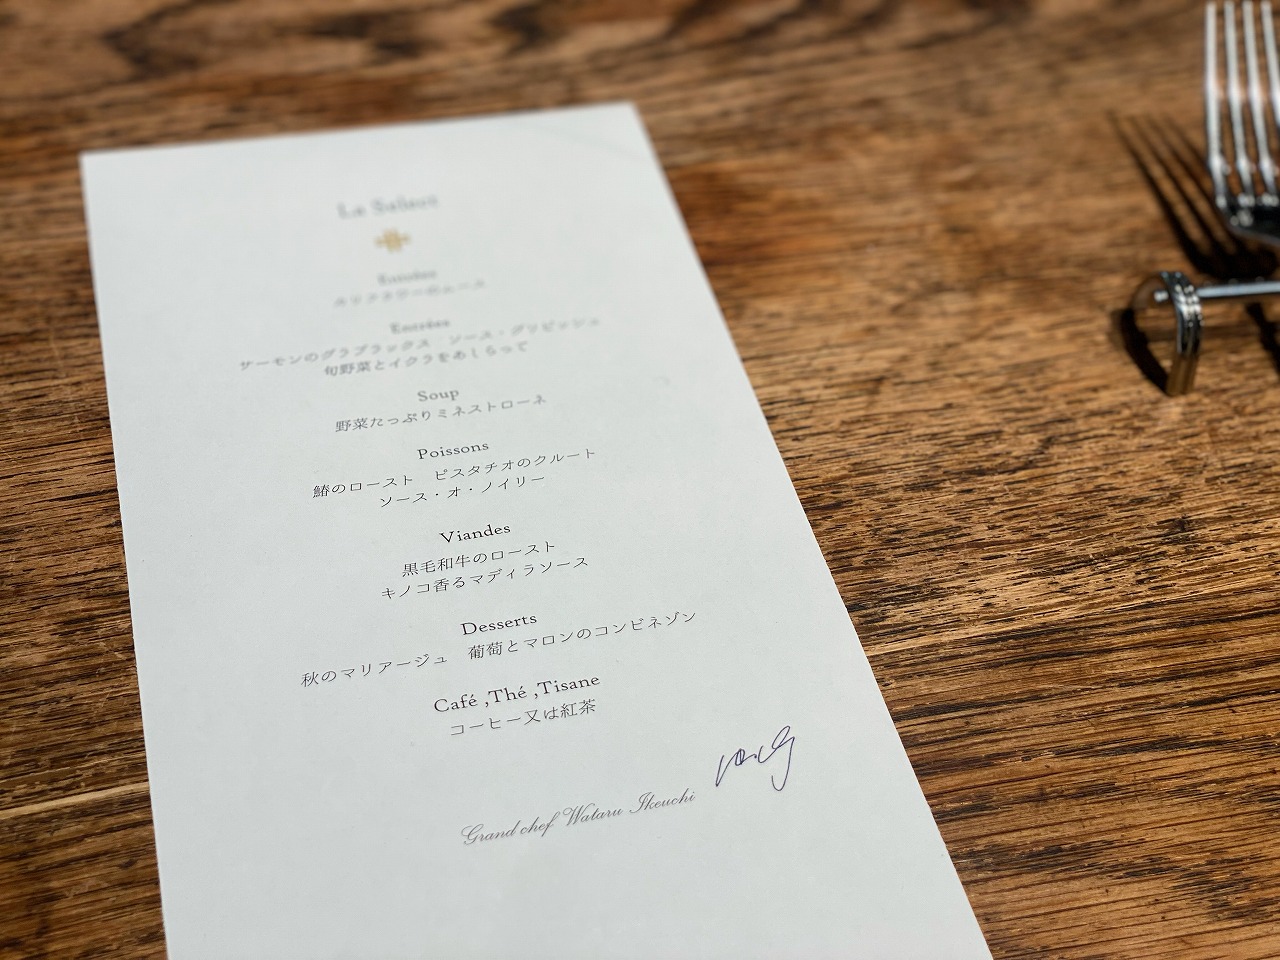 Le Select
Entrées
サーモンのグラブラックス　ソース・グリビッシュ
旬野菜とイクラをあしらって
Soup
野菜たっぷりミネストローネ
Poissons
鰆のロースト　ピスタチオのクルート
ソース・オ・ノイリー
Viandes
黒毛和牛のロースト
キノコ香るマディラソース
Desserts
秋のマリアージュ　葡萄とマロンのコンビネゾン
Café ,Thé ,Tisane
コーヒー又は紅茶
Grand chef Wataru Ikeuchi